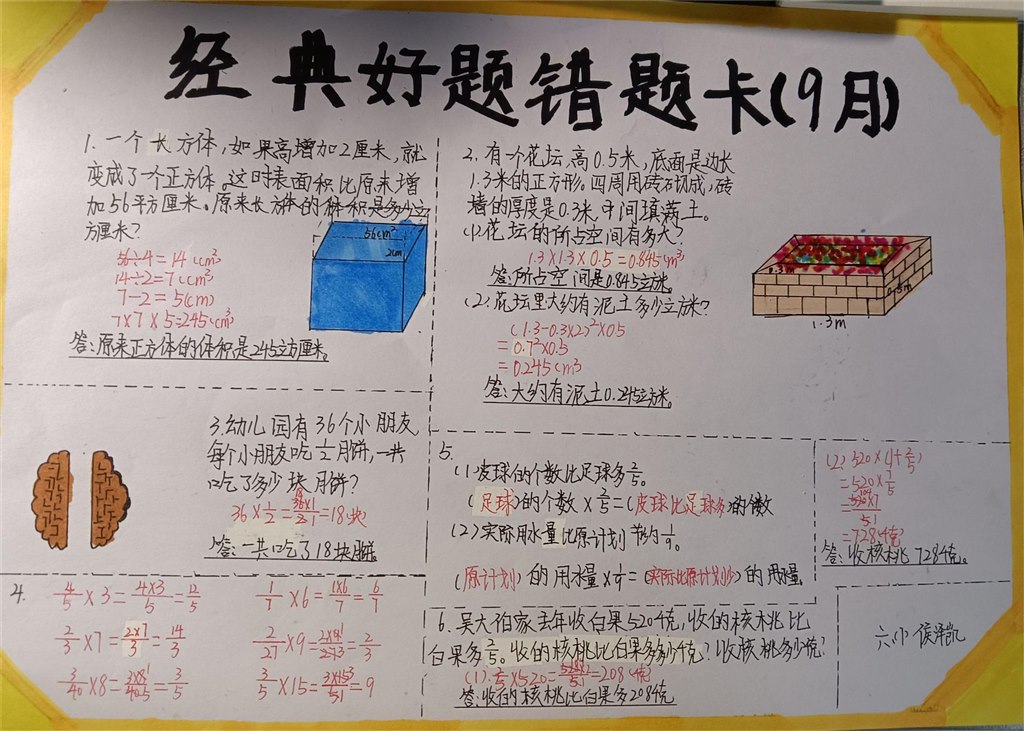 经典好题错题卡(9月)
1. 一个长方体,如果高增加2厘米,就
变成了一个正方体。这时表面积比原来增
加56平方厘米。原来长方体的体积是多少立
方厘米?
56÷4=14(cm²)
14÷2=7(cm)
7-2=5(cm)
7×7×5=245(cm³)
答:原来正方体的体积是245立方厘米。
56cm²
2cm
2. 有一个花坛,高0.5米,底面是边长
1.3米的正方形。四周用砖石切成,砖
墙的厚度是0.3米,中间填满土。
(1)花坛的所占空间有多大?
1.3×1.3×0.5=0.845(m³)
答:所占空间是0.845立方米。
(2)花坛里大约有泥土多少立方米?
(1.3-0.3×2)²×0.5
=0.7²×0.5
=0.245(m³)
答:大约有泥土0.245立方米。
1.3m
0.5m
1.3m
3.幼儿园有36个小朋友
每个小朋友吃1/2月饼,一共
吃了多少块月饼?
36×1/2=36×1/2=18(块)
答:一共吃了18块月饼。
4.
4/5×3=4×3/5=12/5
1/7×6=1×6/7=6/7
2/3×7=2×7/3=14/3
2/27×9=2×9/27=2/3
3/40×8=3×8/40=3/5
3/5×15=3×15/5=9
5.
(1)皮球的个数比足球多2/5。
(足球)的个数×2/5=(皮球比足球多)的个数
(2)实际用水量比原计划节约1/9。
(原计划)的用水量×1/9=(实际比原计划少)的用水量。
6.吴大伯家去年收白果520千克,收的核桃比
白果多2/5。收的核桃比白果多多少千克?收核桃多少千克?
(1)2/5×520=520×2/5=208(千克)
答:收的核桃比白果多208千克
(2)520×(1+2/5)
=520×7/5
=520×7/5
=728(千克)
答:收核桃728千克。
六.小侯泽凯